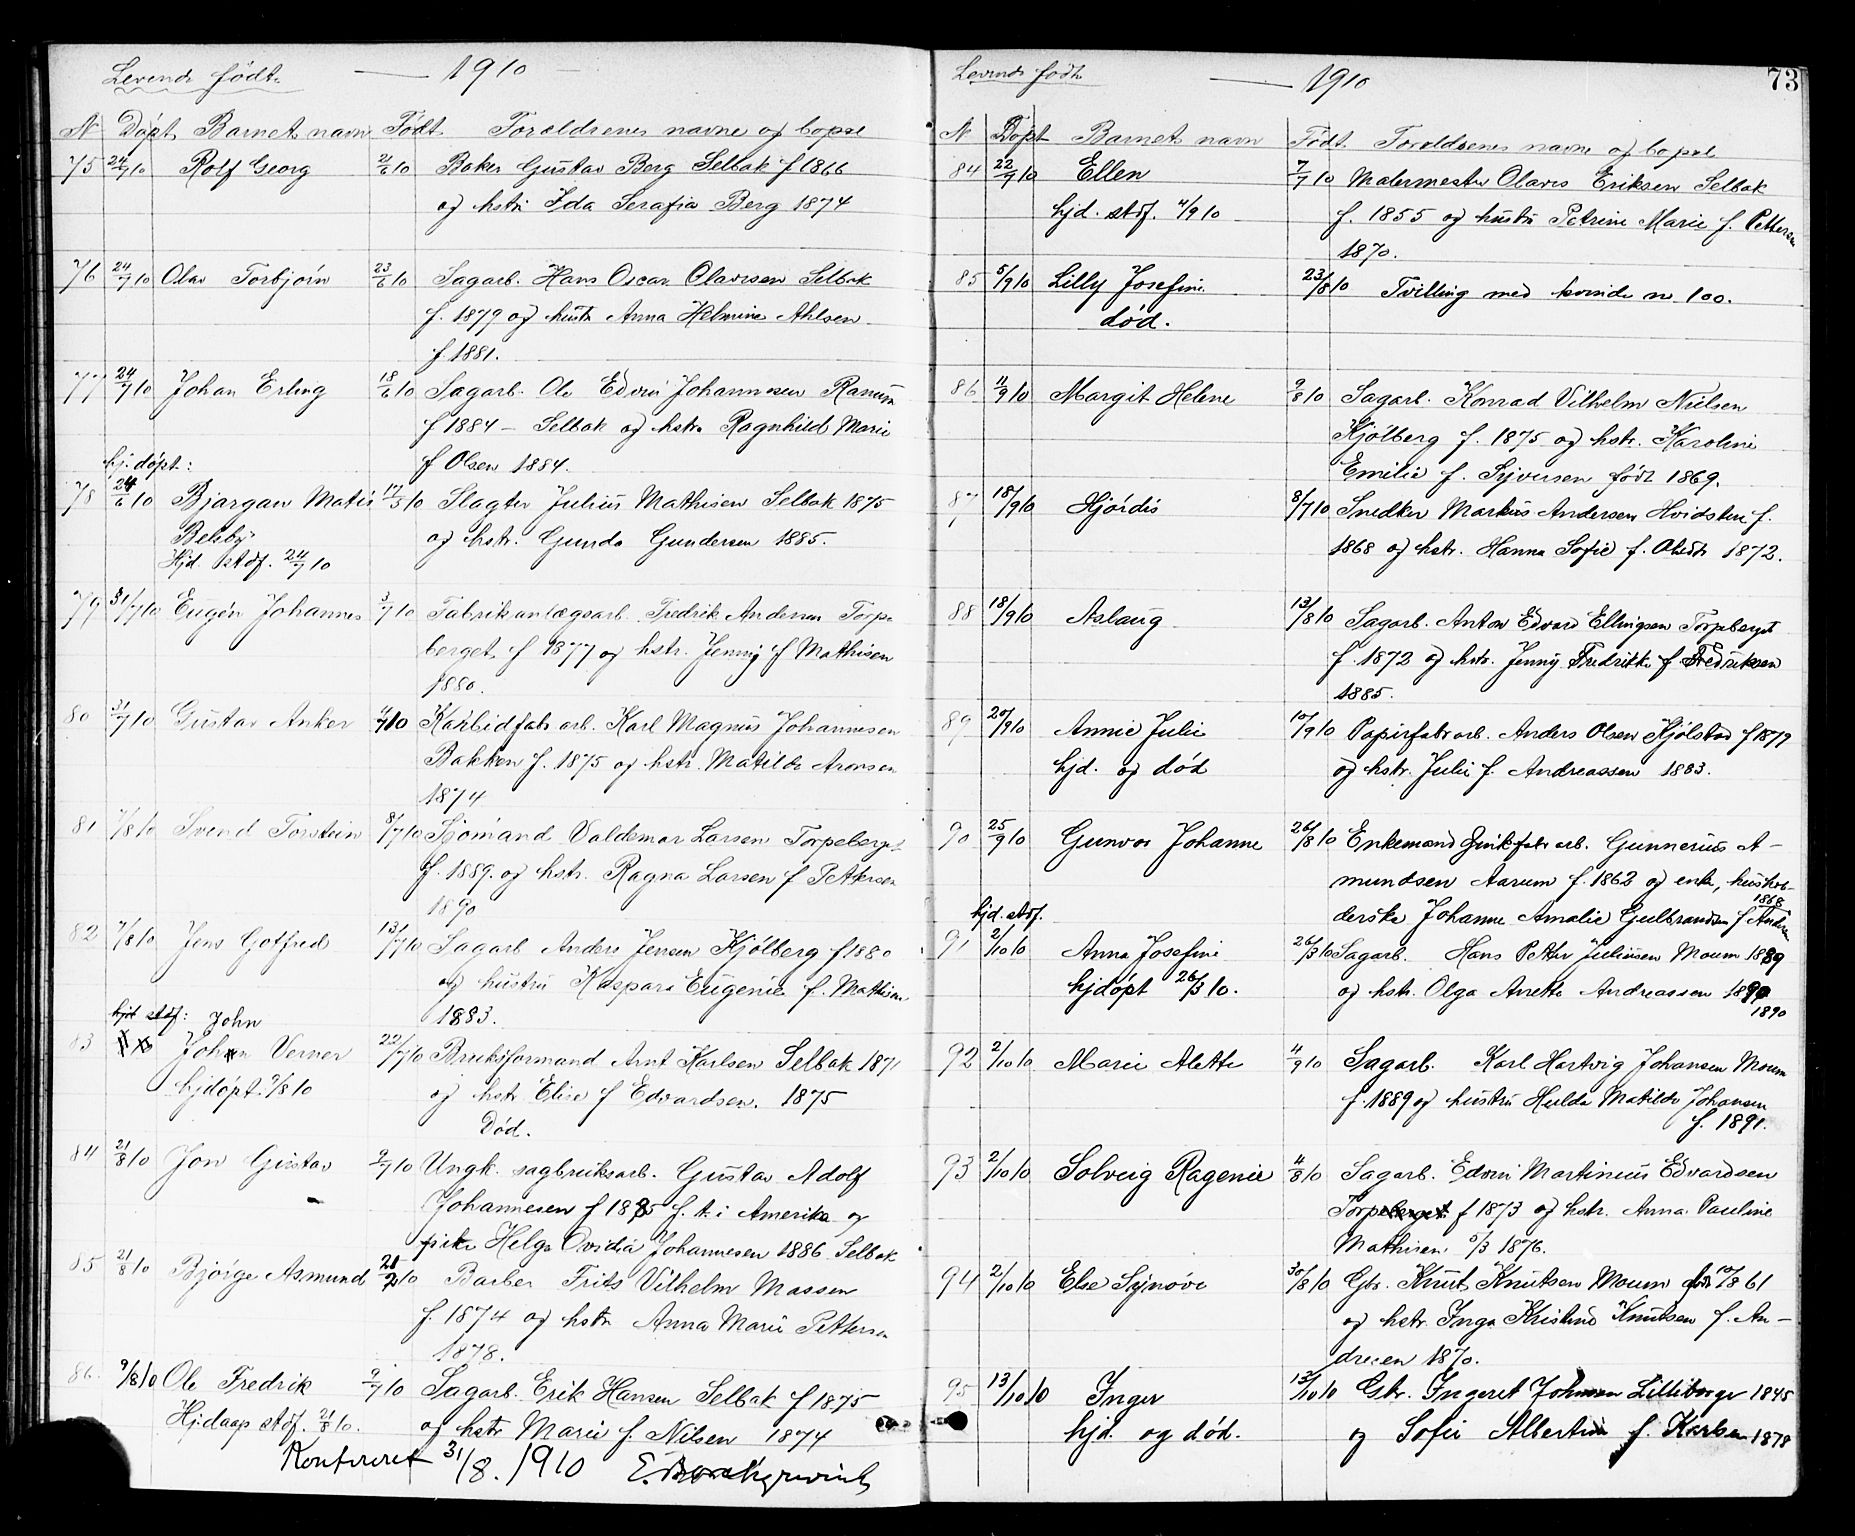 Levende födte 1910
N Döpt Barnets navn Födt Foraldrenes navne og bopæl
75 24/7 10 Rolf Georg 21/6 10 Baker Gustav Berg Selbak f 1866
og hstr Ida Serafia Berg 1874
76 24/7 10 Olav Torbjörn 23/6 10 Sagarb. Hans Oscar Olavesen Selbak
f. 1879 og hustr Anna Helmine Ahlsen
f 1881.
77 24/7 10 Johan Erling 18/6 10 Sagarb. Ole Edvin Johannesen Ranum
f 1884 – Selbak og hstr Ragnhild Marie
f Olsen 1884.
hj. döpt:
78 24/6 10 Bjargau Matis 17/5 10 Slagter Julius Mathisen Selbak 1875
og hstr. Gunda Gundersen 1885.
Hjd. stdf. 24/7 10
79 31/7 10 Eugén Johannes 3/7 10 Fabrikanlægsarb. Fredrik Andersen Torpe
berget f 1877 og hstr. Jenny f Mathisen
1880.
80 31/7 10 Gustav Anker 4/7 10 Karbidfabr arb. Karl Magnus Johannesen
Bakken f. 1875 og hstr. Matilde Aronsen
1874
81 7/8 10 Svend Torstein 8/7 10 Sjömand Valdemar Larsen Torpeberget
f. 1889. og hstr. Ragna Larsen f Petersen
1890
82 7/8 10 Jens Gotfred 13/7 10 Sagarb Anders Jensen Kjölberg f 1880
og hustru Kaspara Eugenie f. Mathisen
1883.
hjd stdf: John
83 Johan Verner 22/7 10 Bruksformand Arnt Karlsen Selbak 1871
hjdöpt. 9/8 10 og hstr Elise f Edvardsen. 1875
Död.
84 21/8 10 Jon Gustav 2/7 10 Ungk. sagbruksarb. Gustav Adolf
Johannesen f 1885 f. t. i Amerika og
pike Helga Ovidia Johannesen 1886. Selbak
85 21/8 10 Bjorge Asmund 21/7 10 Barber Frits Vilhelm Massen
f. 1874 og hstr Anna Marie Pettersen
1878.
86. 9/8 10 Ole Fredrik 2/7 10 Sagarb. Erik Hansen Selbak f 1875
Hjdaap stdf. 21/8 10. og hstr Marie f. Nilsen 1874
Konfereret 31/8. 1910 E. Borchgrevink
Levende födte 1910 73
N Döpt Barnets navn Födt Foraldrenes navne og bopæl
84 22/7 10 Ellen 7/7 10 Malermester Olaves Eriksen Selbak
hjd. stdf. 4/9 10 f. 1855 og hustru Petrine Marie f. Pettersen
1870.
85 5/9 10 Lilly Josefine 23/8 10 Tvilling med kvinde no 100.
död.
86 11/9 10 Margit Helene 9/8 10 Sagarb. Konrad Vilhelm Nielsen
Kjölberg f. 1875 og hstr. Karoline
Emilie f. Syversen född 1869.
87 18/9 10 Hjördis 8/7 10 Snedker Markus Andersen Hvidsten f.
1868 og hstr. Hanna Sofie f. Olsdtr 1872.
88 18/9 10 Aslaug 13/8 10 Sagarb. Anton Edvard Ellingsen Torpeberget
f. 1872 og hstr. Jenny Fredrikke f Fredriksen
1885.
89 20/9 10 Annie Julie 10/9 10 Papirfabr arb. Anders Olsen Kjölstad f 1879
hjd. og död og hstr. Julie f. Andreassen 1883.
90 25/9 10 Gunvor Johanne 26/8 10 Enkemand Zinkfabr arb. Gunnerius A-
mundsen Aarum f. 1862 og enke, hushol-
derske Johanne Amalie Gulbrandsen f Andersen 1868
hjd. stdf.
91 2/10 10 Anna Josefine 26/3 10 Sagarb. Hans Petter Juliussen Moum 1889
hjdöpt 26/3 10. og hstr. Olga Anette Andreassen 1890
1890
92 2/10 10 Marie Alette 4/9 10 Sagarb. Karl Hartvig Johansen Moum
f. 1889 og hustru Hulda Matilde Johansen
f. 1891.
93 2/10 10 Solveig Ragenie 4/8 10 Sagarb. Edvin Martinius Edvardsen
Torpeberget f 1873 og hstr. Anna Pauline
Mathisen 5/3 1876.
94 2/10 10 Else Synöve 30/8 10 Gbr. Knut Knutsen Moum 10/8 61
og hstr. Inga Kristine Knutsen f. An-
dresen 1870.
95 13/10 10 Inger 13/10 10 Gbr. Ingeret Johnsen Lilleborge 1845
hjd. og död. og Sofie Albertine f. Karlsen 1878